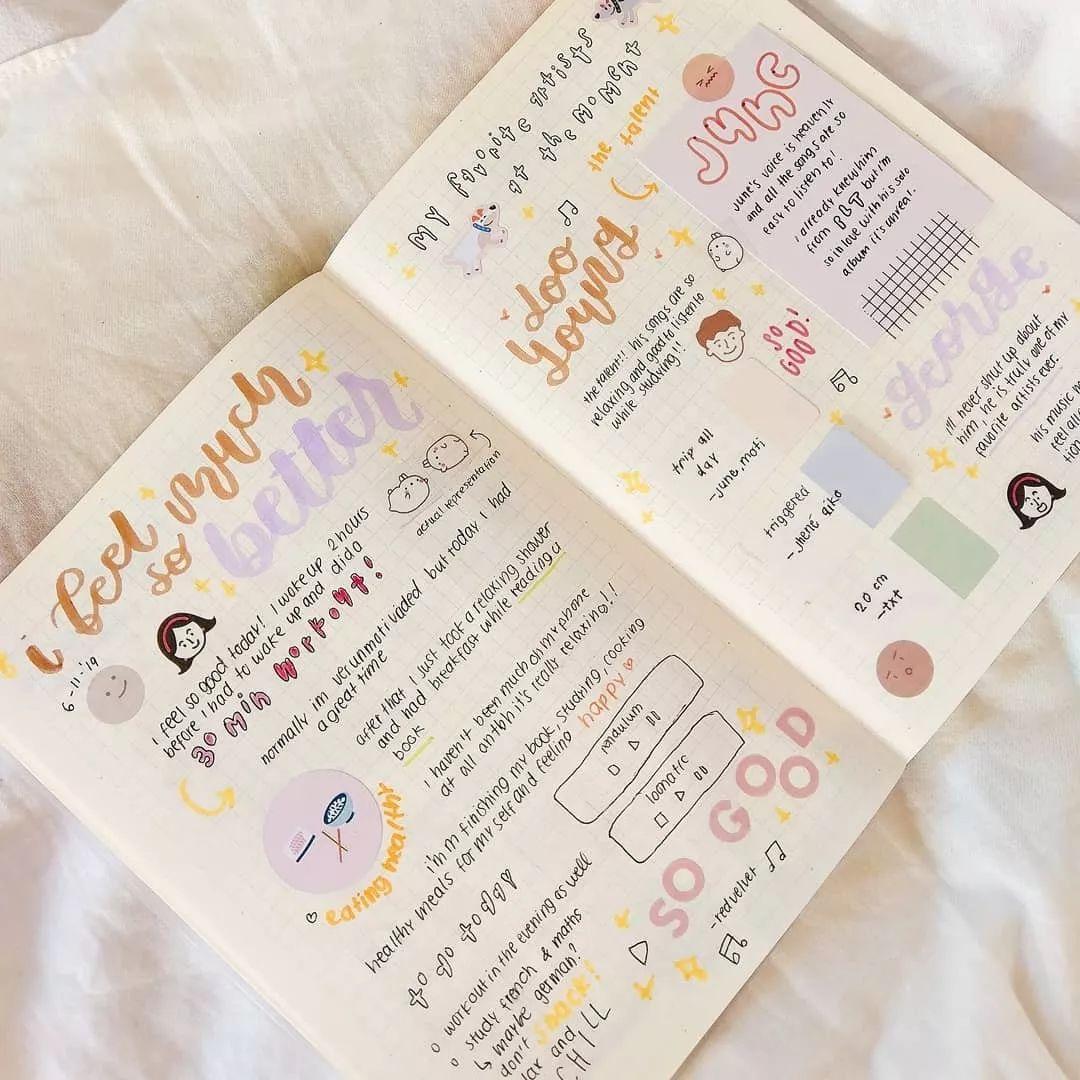 i feel much
so better
6-11-'19
actual representation
i feel so good today! i woke up 2 hours
before i had to wake up and did a
30 min workout!
normally i'm very unmotivaded but today i had
a great time
after that I just took a relaxing shower
and had breakfast while reading a
book
i haven't been much on my phone
at all anthh it's really relaxing!!
i'm finishing my book, studying, cooking
healthy meals for my self and feeling happy
eating healthy
pendulum
100 matrc
to do today
workout in the evening as well
study french & maths
↳ maybe german?
don't snack!
lax and
CHILL
SO GOOD
-red velvet
my favorite artists
at the moment
the talent
doo
young
the talent!! his songs are so
relaxing and good to listen to
while studying!!
JUNE
june's voice is heavenly
and all the songs are so
easy to listen to!
i already knew him
from but i'm
so in love with his solo
album it's unreal.
SO
GOOD!
george
i'll never shut up about
him, he is truly one of my
favorite artists ever.
his music m
feel all
tion
trip all
day
-june, moti
triggered
-jhené aiko
20 cm
-txt